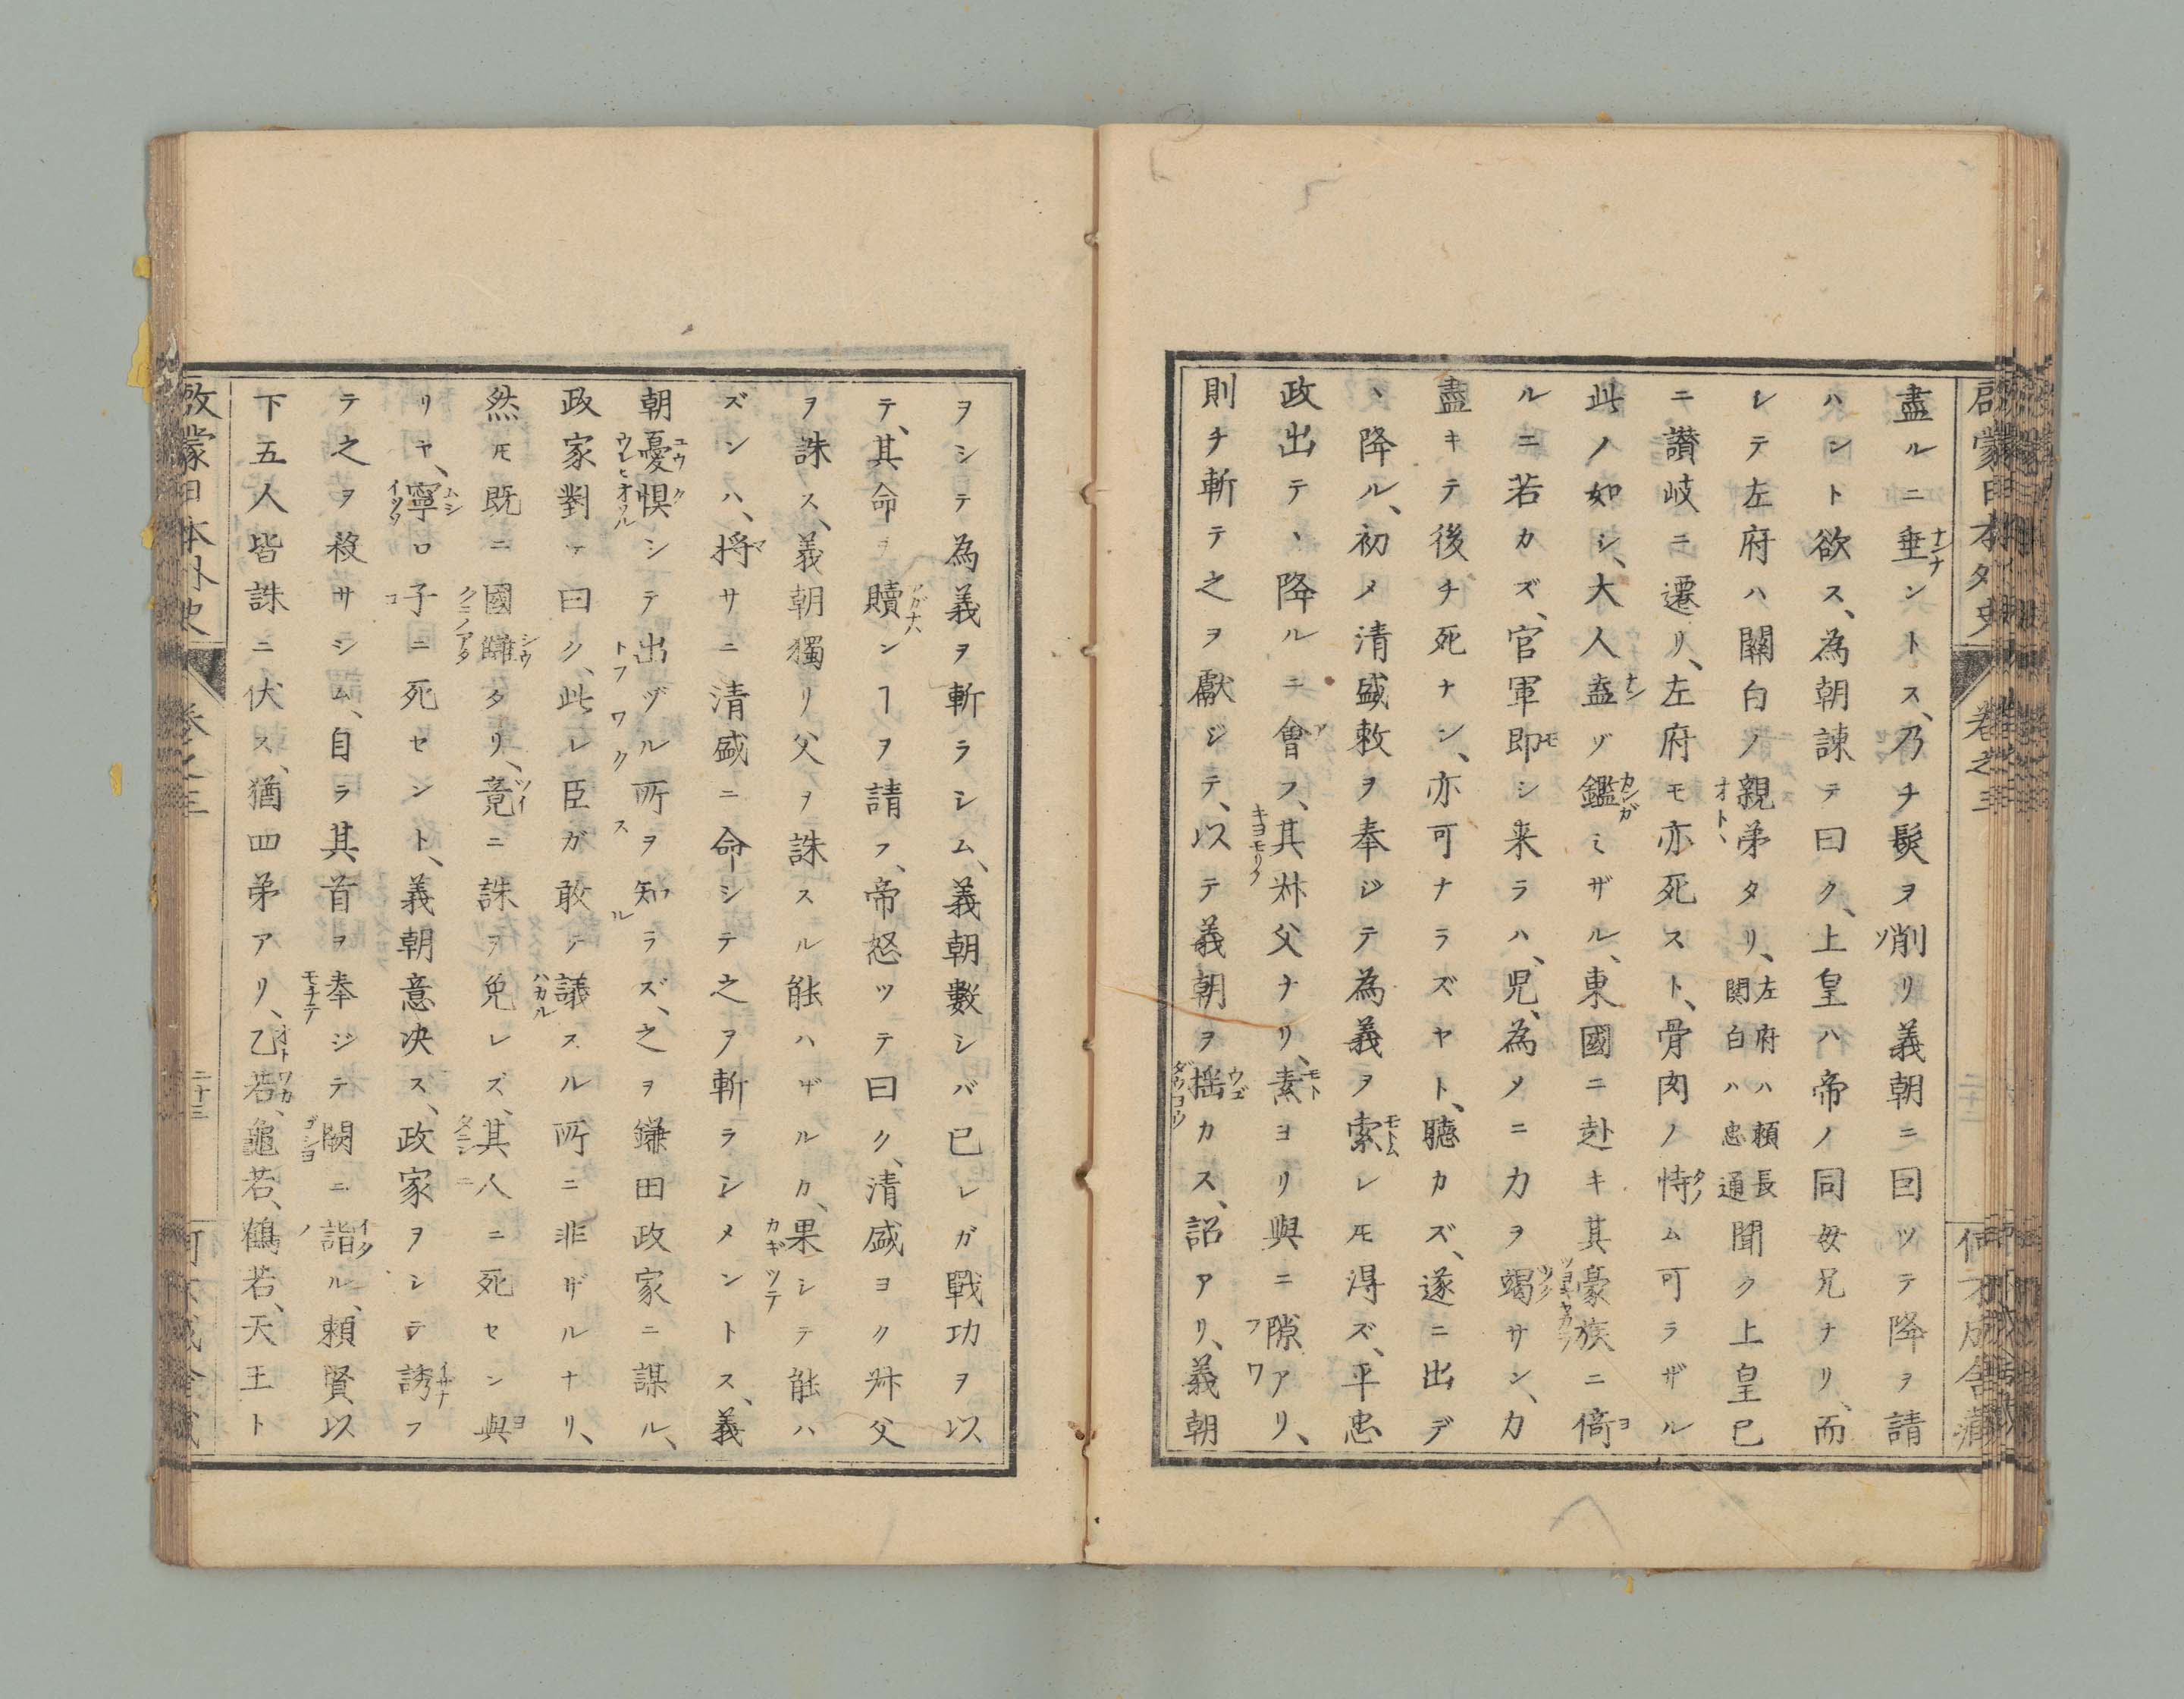 盡ルニ垂ントス、乃チ髮ヲ削リ義朝ニ囙ツテ降ヲ請
ハント欲ス、為朝諫テ曰ク、上皇ハ帝ノ同母兄ナリ、而
レテ左府ハ關白ノ親弟タリ、左府ハ頼長関白ハ忠通聞ク上皇已
ニ讃岐ニ遷リ、左府モ亦死スト、骨肉ノ恃ム可ラザル
此ノ如シ、大人盍ゾ鑑ミザル、東國ニ赴キ其豪族ニ倚
ルニ若カズ、官軍即シ来ラハ、児、為メニ力ヲ竭サン、力
盡キテ後チ死ナン、亦可ナラズヤト、聴カズ、遂ニ出デ
ヽ降ル、初メ清盛敕ヲ奉ジテ為義ヲ索レ𪜈得ズ、平忠
政出テヽ降ルニ會フ、其叔父ナリ、素ヨリ與ニ隙アリ、
則チ斬テ之ヲ獻ジテ、以テ義朝ヲ揺カス、詔アリ、義朝
ヲシテ為義ヲ斬ラシム、義朝數シバ已レガ戰功ヲ以
テ、其命ヲ贖ンヿヲ請フ、帝怒ツテ曰ク、清盛ヨク叔父
ヲ誅ス、義朝獨リ父ヲ誅スル能ハザルカ、果シテ能ハ
ズンハ、将サニ清盛ニ命シテ之ヲ斬ラシメントス、義
朝憂惧シテ出ヅル所ヲ知ラズ、之ヲ鎌田政家ニ謀ル、
政家對テ曰ク、此レ臣ガ敢テ議スル所ニ非ザルナリ、
然𪜈既ニ國讎タリ、竟ニ誅ヲ免レズ、其人ニ死セン與
リヤ、寧ロ子ニ死セント、義朝意决ス、政家ヲシテ誘フ
テ之ヲ殺サシム、自ラ其首ヲ奉ジテ闕ニ詣ル、頼賢以
下五人皆誅ニ伏ス、猶四弟アリ、乙若、龜若、鶴若、天王ト
啓蒙日本外史 卷之三 二十三